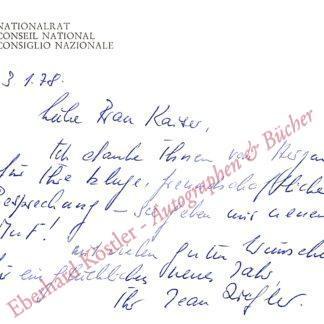 NATIONALRAT
CONSEIL NATIONAL
CONSIGLIO NAZIONALE
3.1.78.
Liebe Frau Kaiser,
Ich danke Ihnen von Herzen
für Ihre kluge, freundschaftliche
Besprechung – sie geben mir neuen
Mut!
mit vielen guten Wünschen
für ein glückliches neues Jahr,
Ihr Jean Ziegler.
Eberhard Köstler - Autographen & Bücher